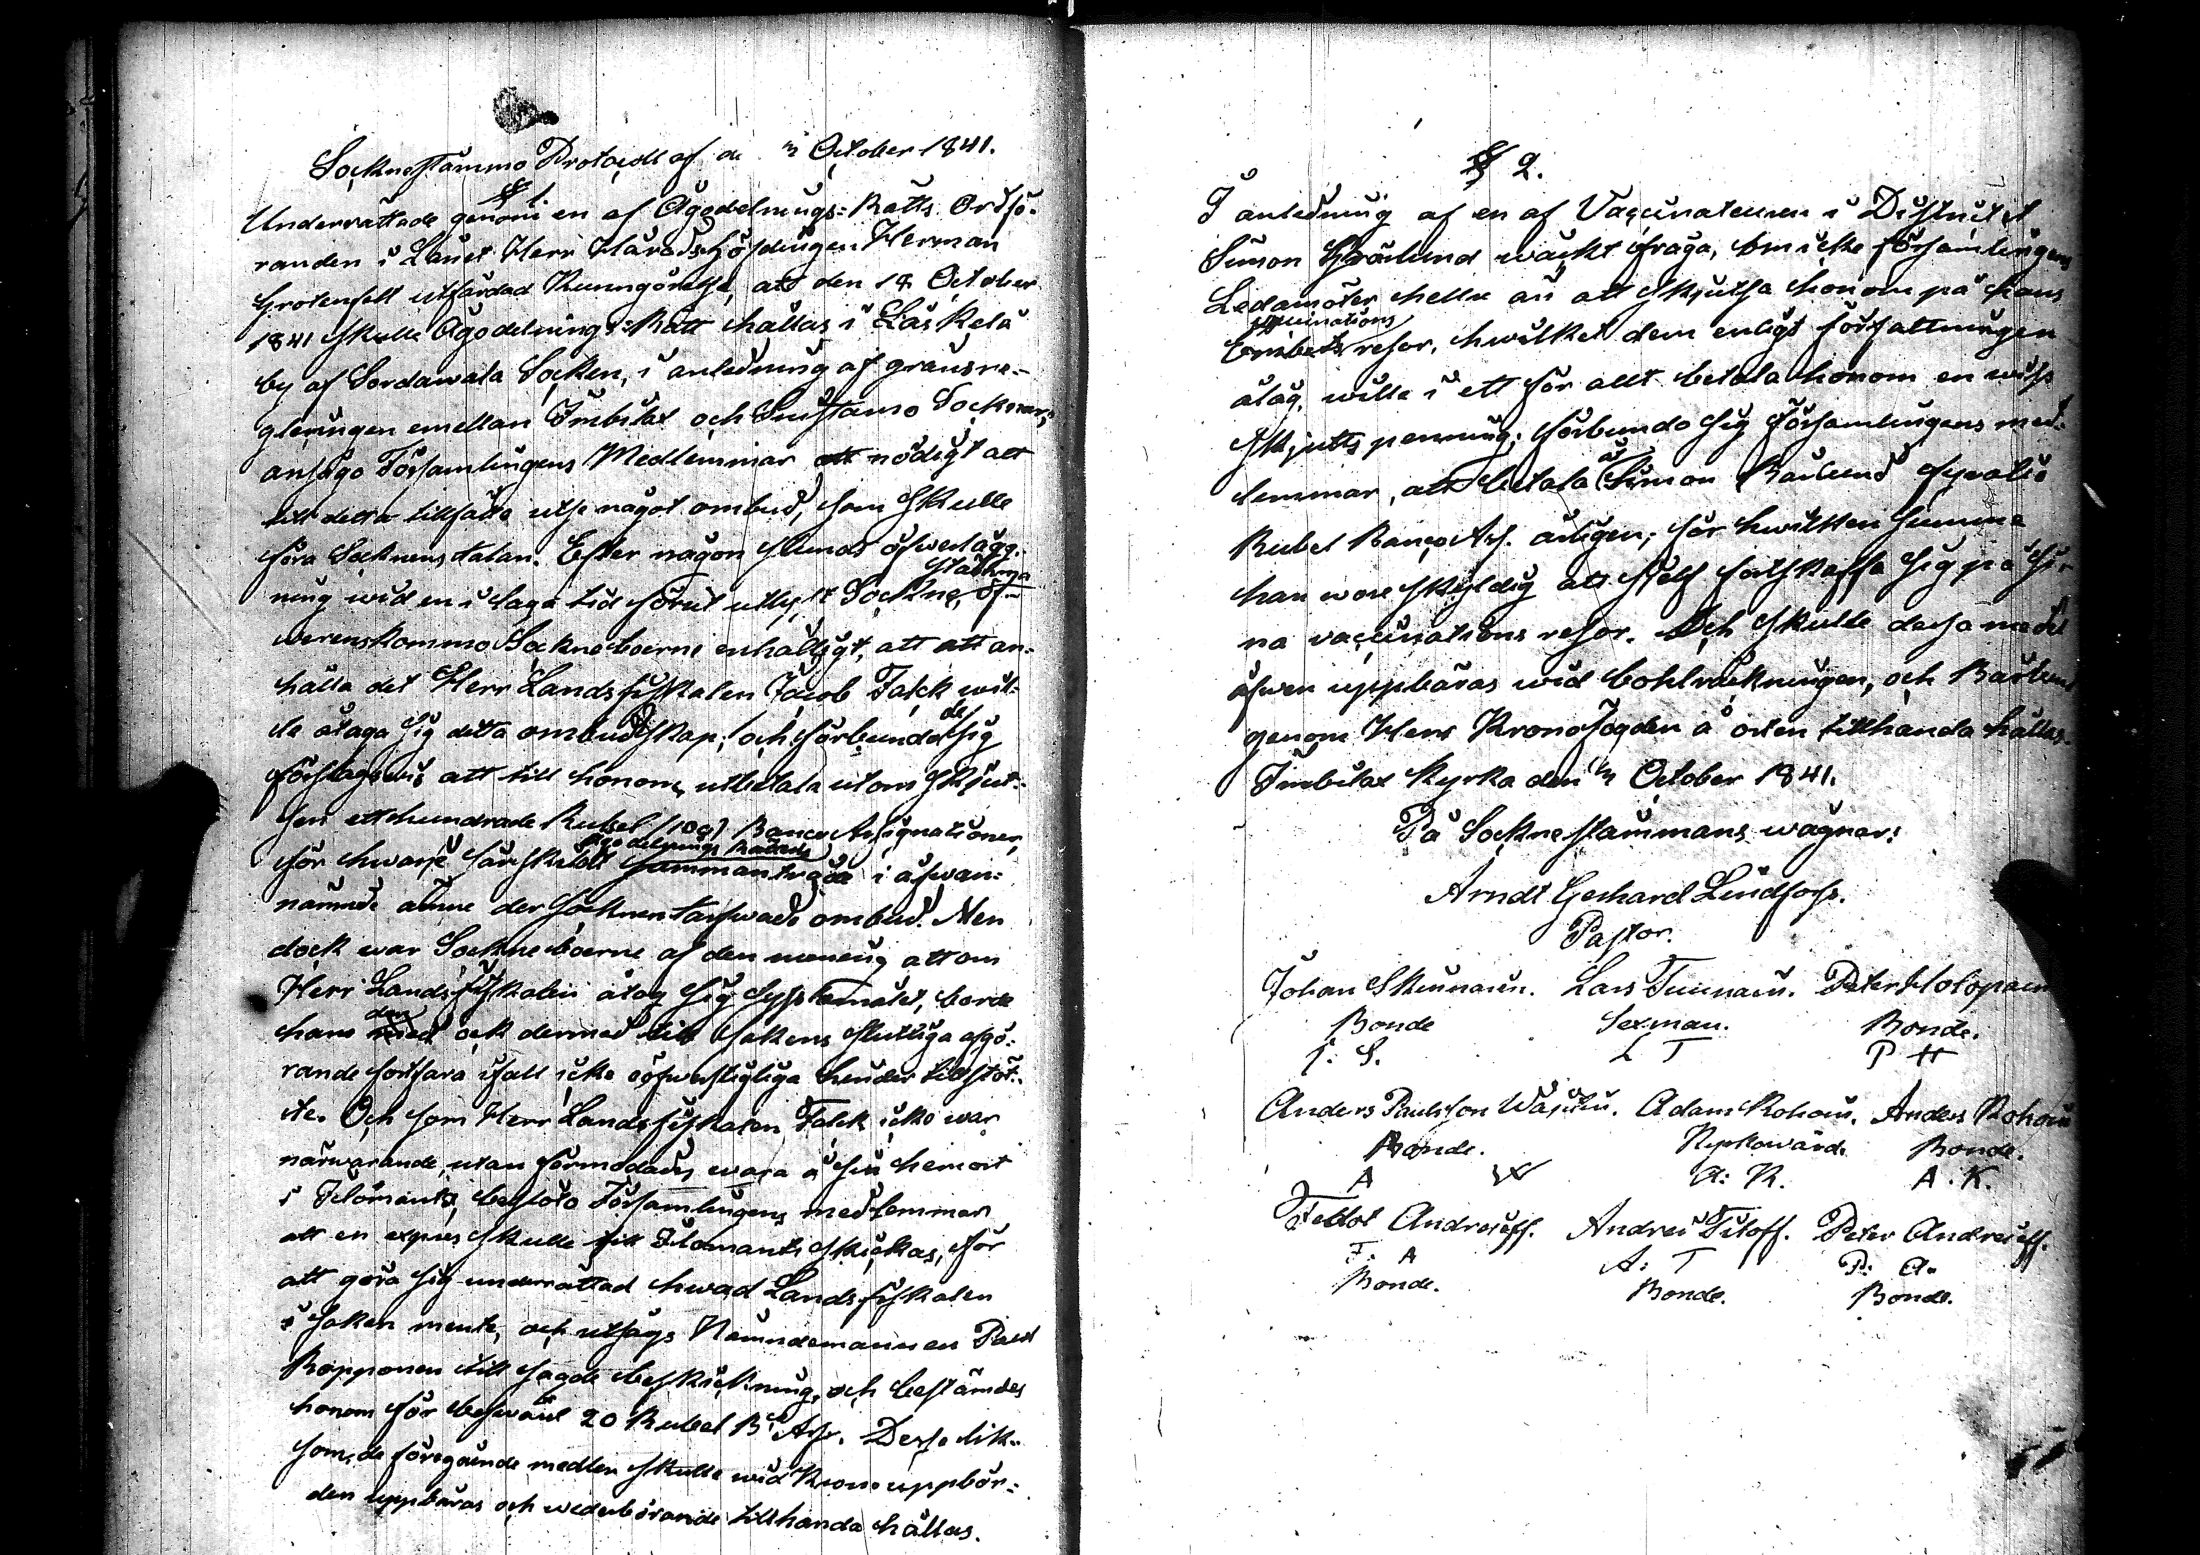 Sockne stämmo Protocoll af d. October 1841.
§ 1.
Underrättade genom en af Ägodelnings-Rätts Ordfö-
randen i Länet Herr Häradshöfdingen Herman
Grotenfelt utfärdad Kungörelse, att den 18 October
1841 skulle Ägodelnings-Rätt hållas i Läskelä
by af Sordawala Socken, i anledning af gränsre-
gleringen emellan Imbilax och Suistamo Socknar,
ansågo Församlingens Medlemmar nödigt att
till detta tillfälle utse något ombud, som skulle
föra Socknens talan. Efter någon stunds öfverlägg-
ning wid en i laga tid förut utlyst Sockne stämma öf-
verenskommo Sockneboerne enhälligt, att an-
hålla det Herr Landsfiskalen Jacob Falck wil-
le åtaga sig detta ombudskap; och förbundo de sig
förslagsvis att till honom utbetala utom skjut-
sen etthundrade Rubel (100) Banco Assignationer,
för hwarje särskildt Ägodelnings Rättens sammanträde i ofvan-
nämnde ämne der socknen tarfwade ombud. Men
dock war Sockneboerne af den mening att om
Herr Landsfiskalen åtog sig sysslomålet, borde
han den ock dermed till sakens slutliga afgö-
rande fortfara ifall icke oöfverstigliga hinder tillstöt-
te. Och som Herr Landsfiskalen Falck icke war
närwarande, utan förmodades wara å sin hemort
i Ilomants, beslöto Församlingens medlemmar
att en expres skulle till Ilomants skickas, för
att göra sig underrättad hwad Landsfiskalen
i saken mente, och utsågs Nämndemannen Paul
Ropponen till sagde beskickning, och bestämdes
honom för beswäret 20 Rubel Bco Ass. Desse lik-
som de föregående medlen skulle wid Krono uppbör-
den uppbäras och wederbörande tillhanda hållas.
§ 2.
I anledning af en af Vaccinateuren i Districtet
Simon Bäcklund wäckt fråga, om icke församlingens
Ledamöter hellre än att skjutsa honom på hans
vaccinations resor, hwilket dem enligt författningen
ålåg, wille i ett för allt betala honom en wiss
skjutspenning; förbundo sig Församlingens med-
lemmar, att betala å Simon Bäcklund fyratio
Rubel Banco Ass. årligen; för hwilken summa
han wore skyldig att sjelf fortskaffa sig på si-
na vaccinations resor. Och skulle dessa medel
äfwen uppbäras wid bohlräkningen, och Bäcklund
genom Herr Kronofogden å orten tillhanda hållas.
Imbilax Kyrka den October 1841.
På Sockne stämmans wägnar:
Arndt Gerhard Lindforss.
Pastor.
Johan Skinnarin. Lars Tunnain. Peter Holopain
Bonde Sexman. Bonde.
J. S. L T P H
Anders Paulsson Wäsäin. Adam Kohoin. Anders Kohoin
Bonde. Kyrkowärd. Bonde.
A W A: K. A. K.
Feklot Andrejeff. Andrei Titoff. Peter Andrejeff.
F. A A: T P: A.
Bonde. Bonde. Bonde.